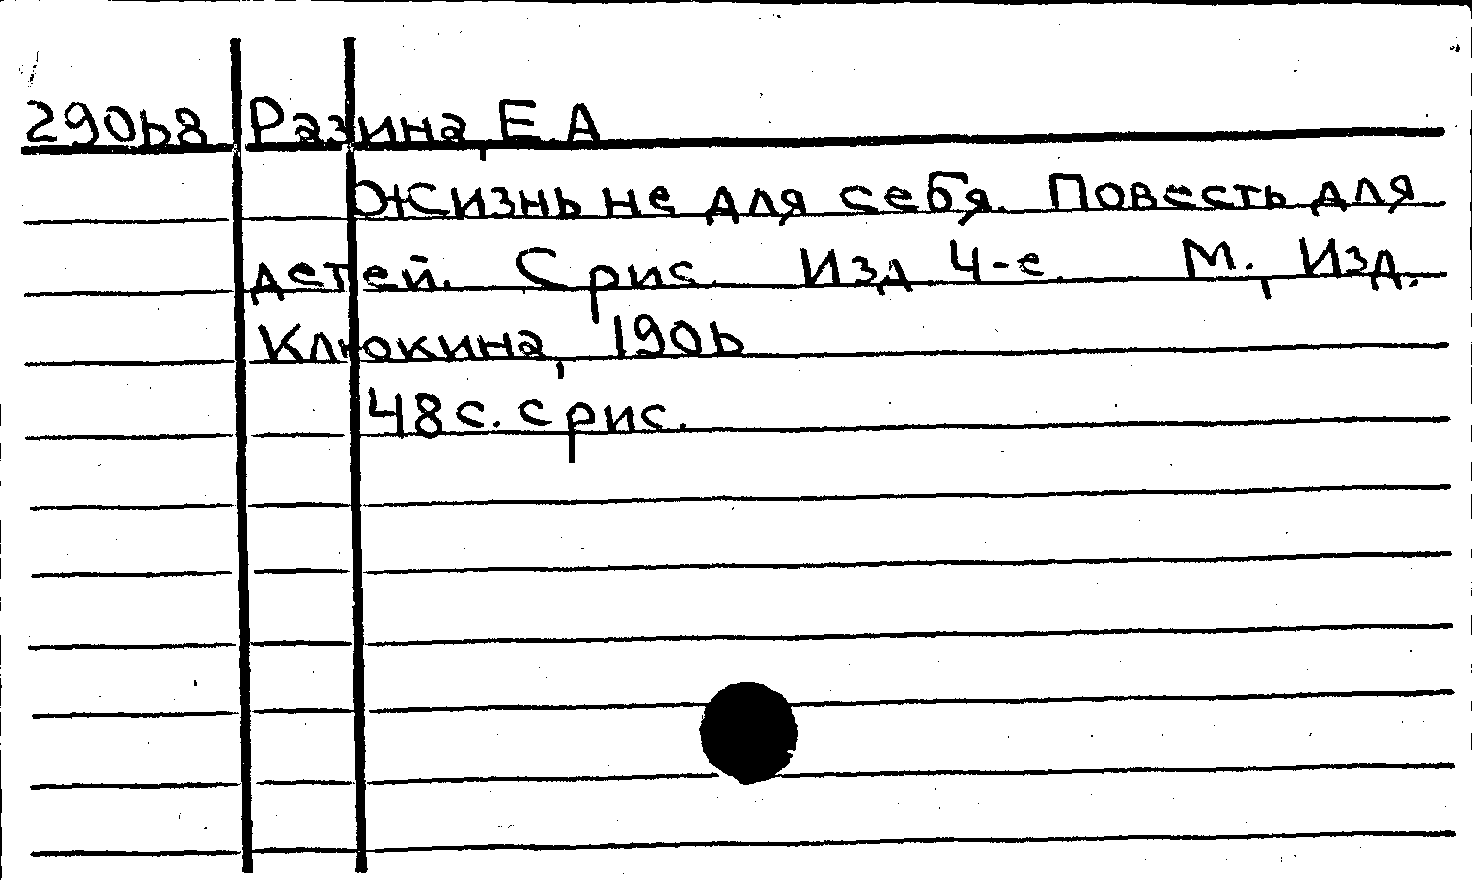 29068 Разина, Е. А
Жизнь не для себя. Повесть для
детей. С рис. Изд 4-е. М., Изд.
Клюкина, 1906
48 с. с рис.